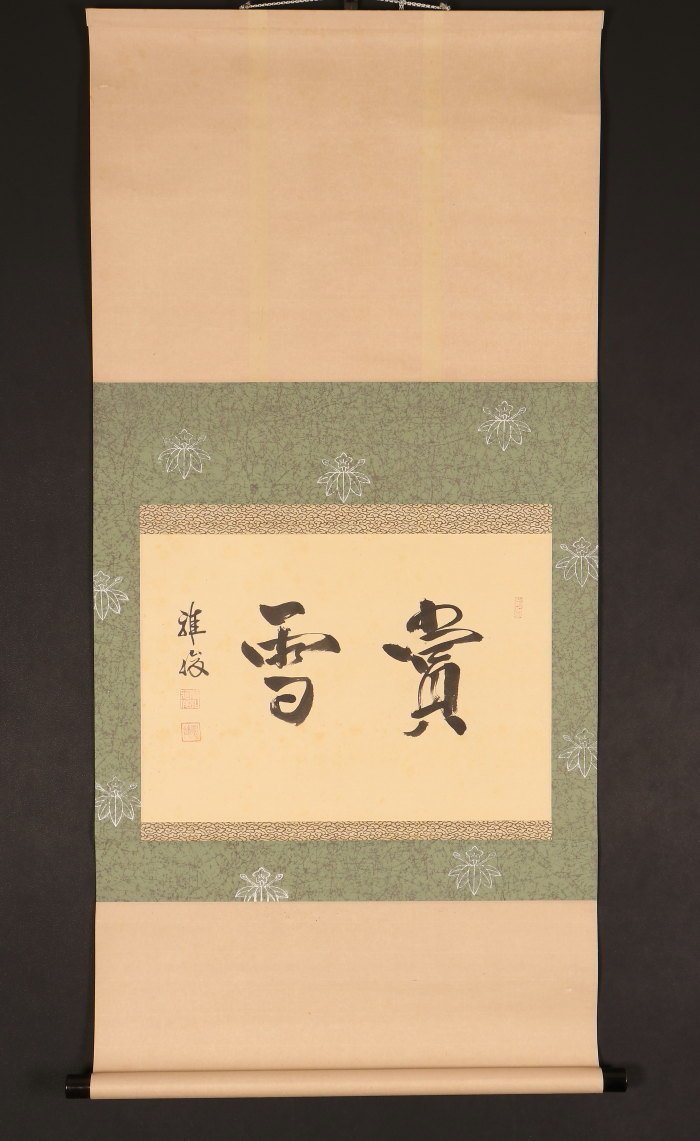 賞雪
雅俊